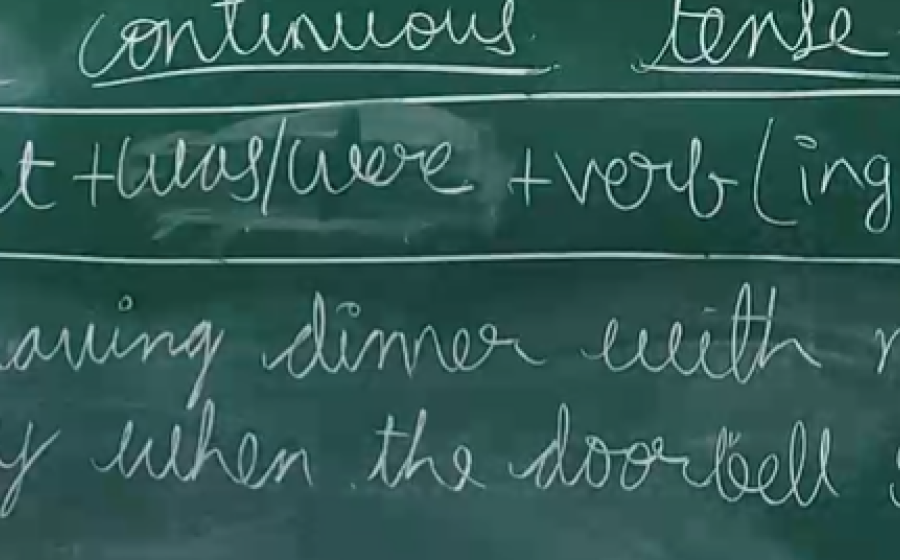 continuous tense
t + was/were + verb (ing
aving dinner with
y when the doorbell